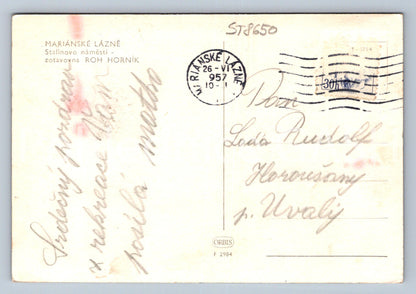 ST8650
MARIÁNSKÉ LÁZNĚ
Stalinovo náměstí -
zotavovna ROH HORNÍK
MARIÁNSKÉ LÁZNĚ
26.-VI
1957
10-
30h
Srdečný pozdrav
z rekreace Vám
posílá matka
Pan
Lada Rudolf
Horoušany
p. Úvaly
ORBIS
F 2984